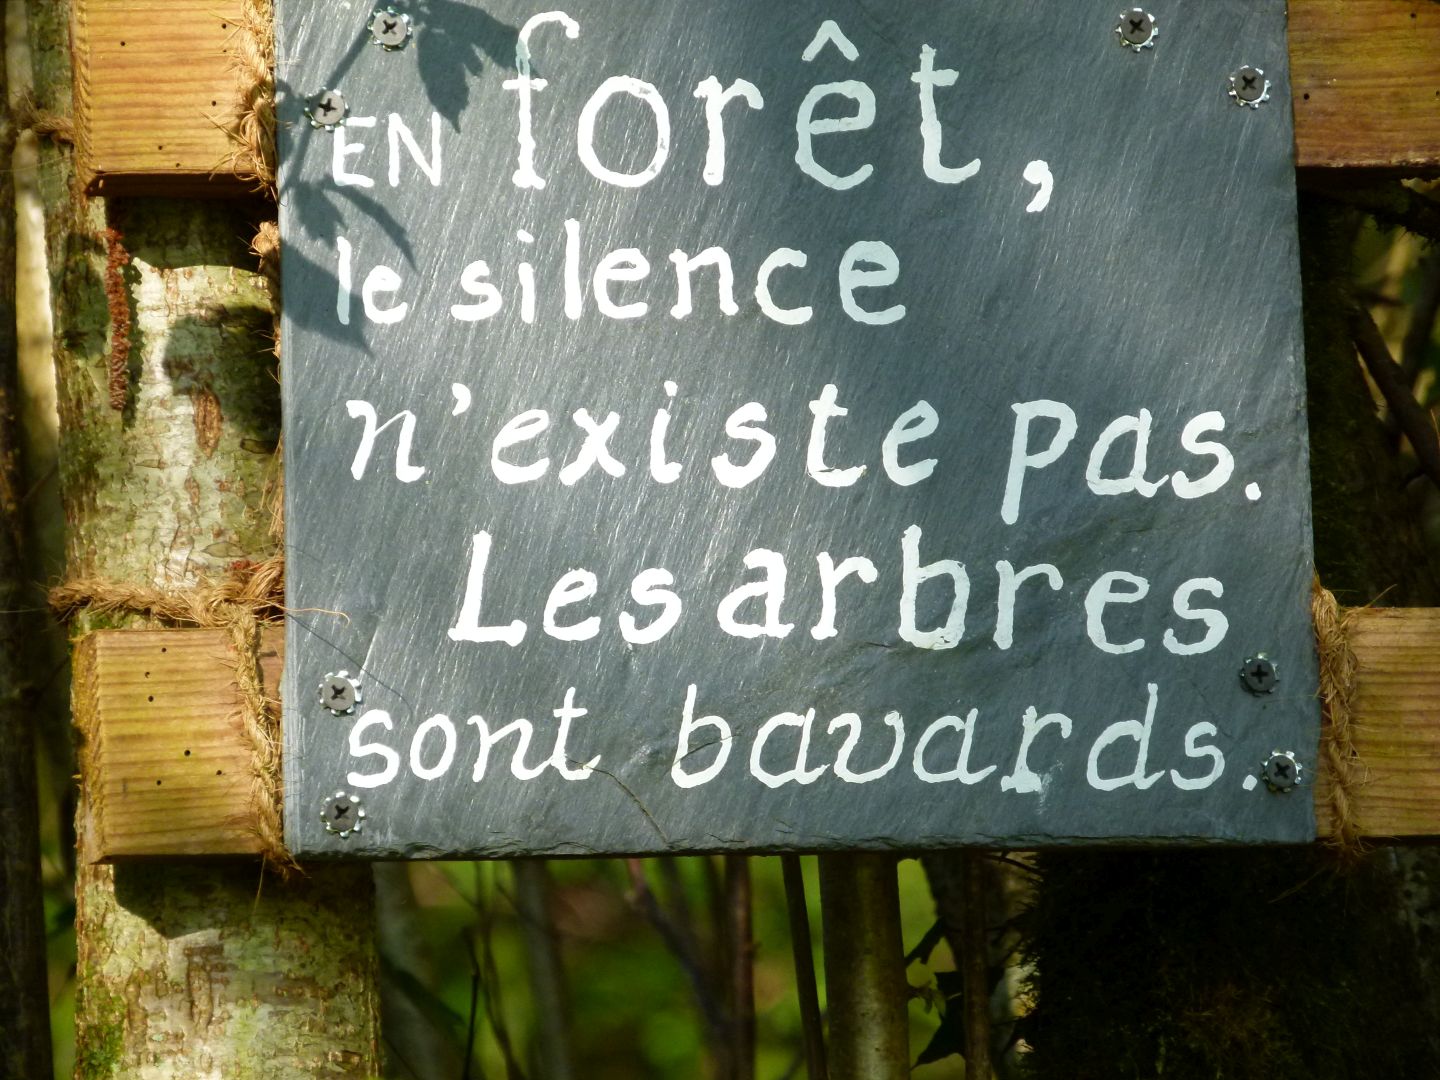 EN forêt,
le silence
n'existe pas.
Les arbres
sont bavards.